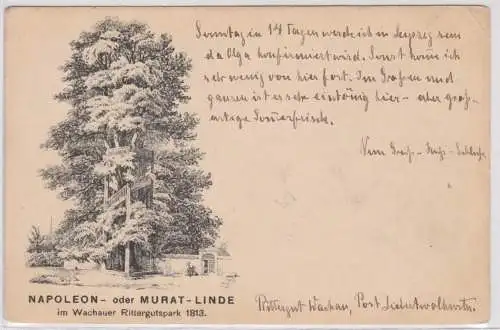 Sonntag in 14 Tagen werde ich in Leipzig sein
da Olga konfirmiert wird. Sonst komme ich
sehr wenig von hier fort. Im Großen und
ganzen ist es sehr eintönig hier - aber groß-
artige Sommerfrische.
NAPOLEON- oder MURAT-LINDE
im Wachauer Rittergutspark 1813.
Rittergut Wachau, Post Liebertwolkwitz